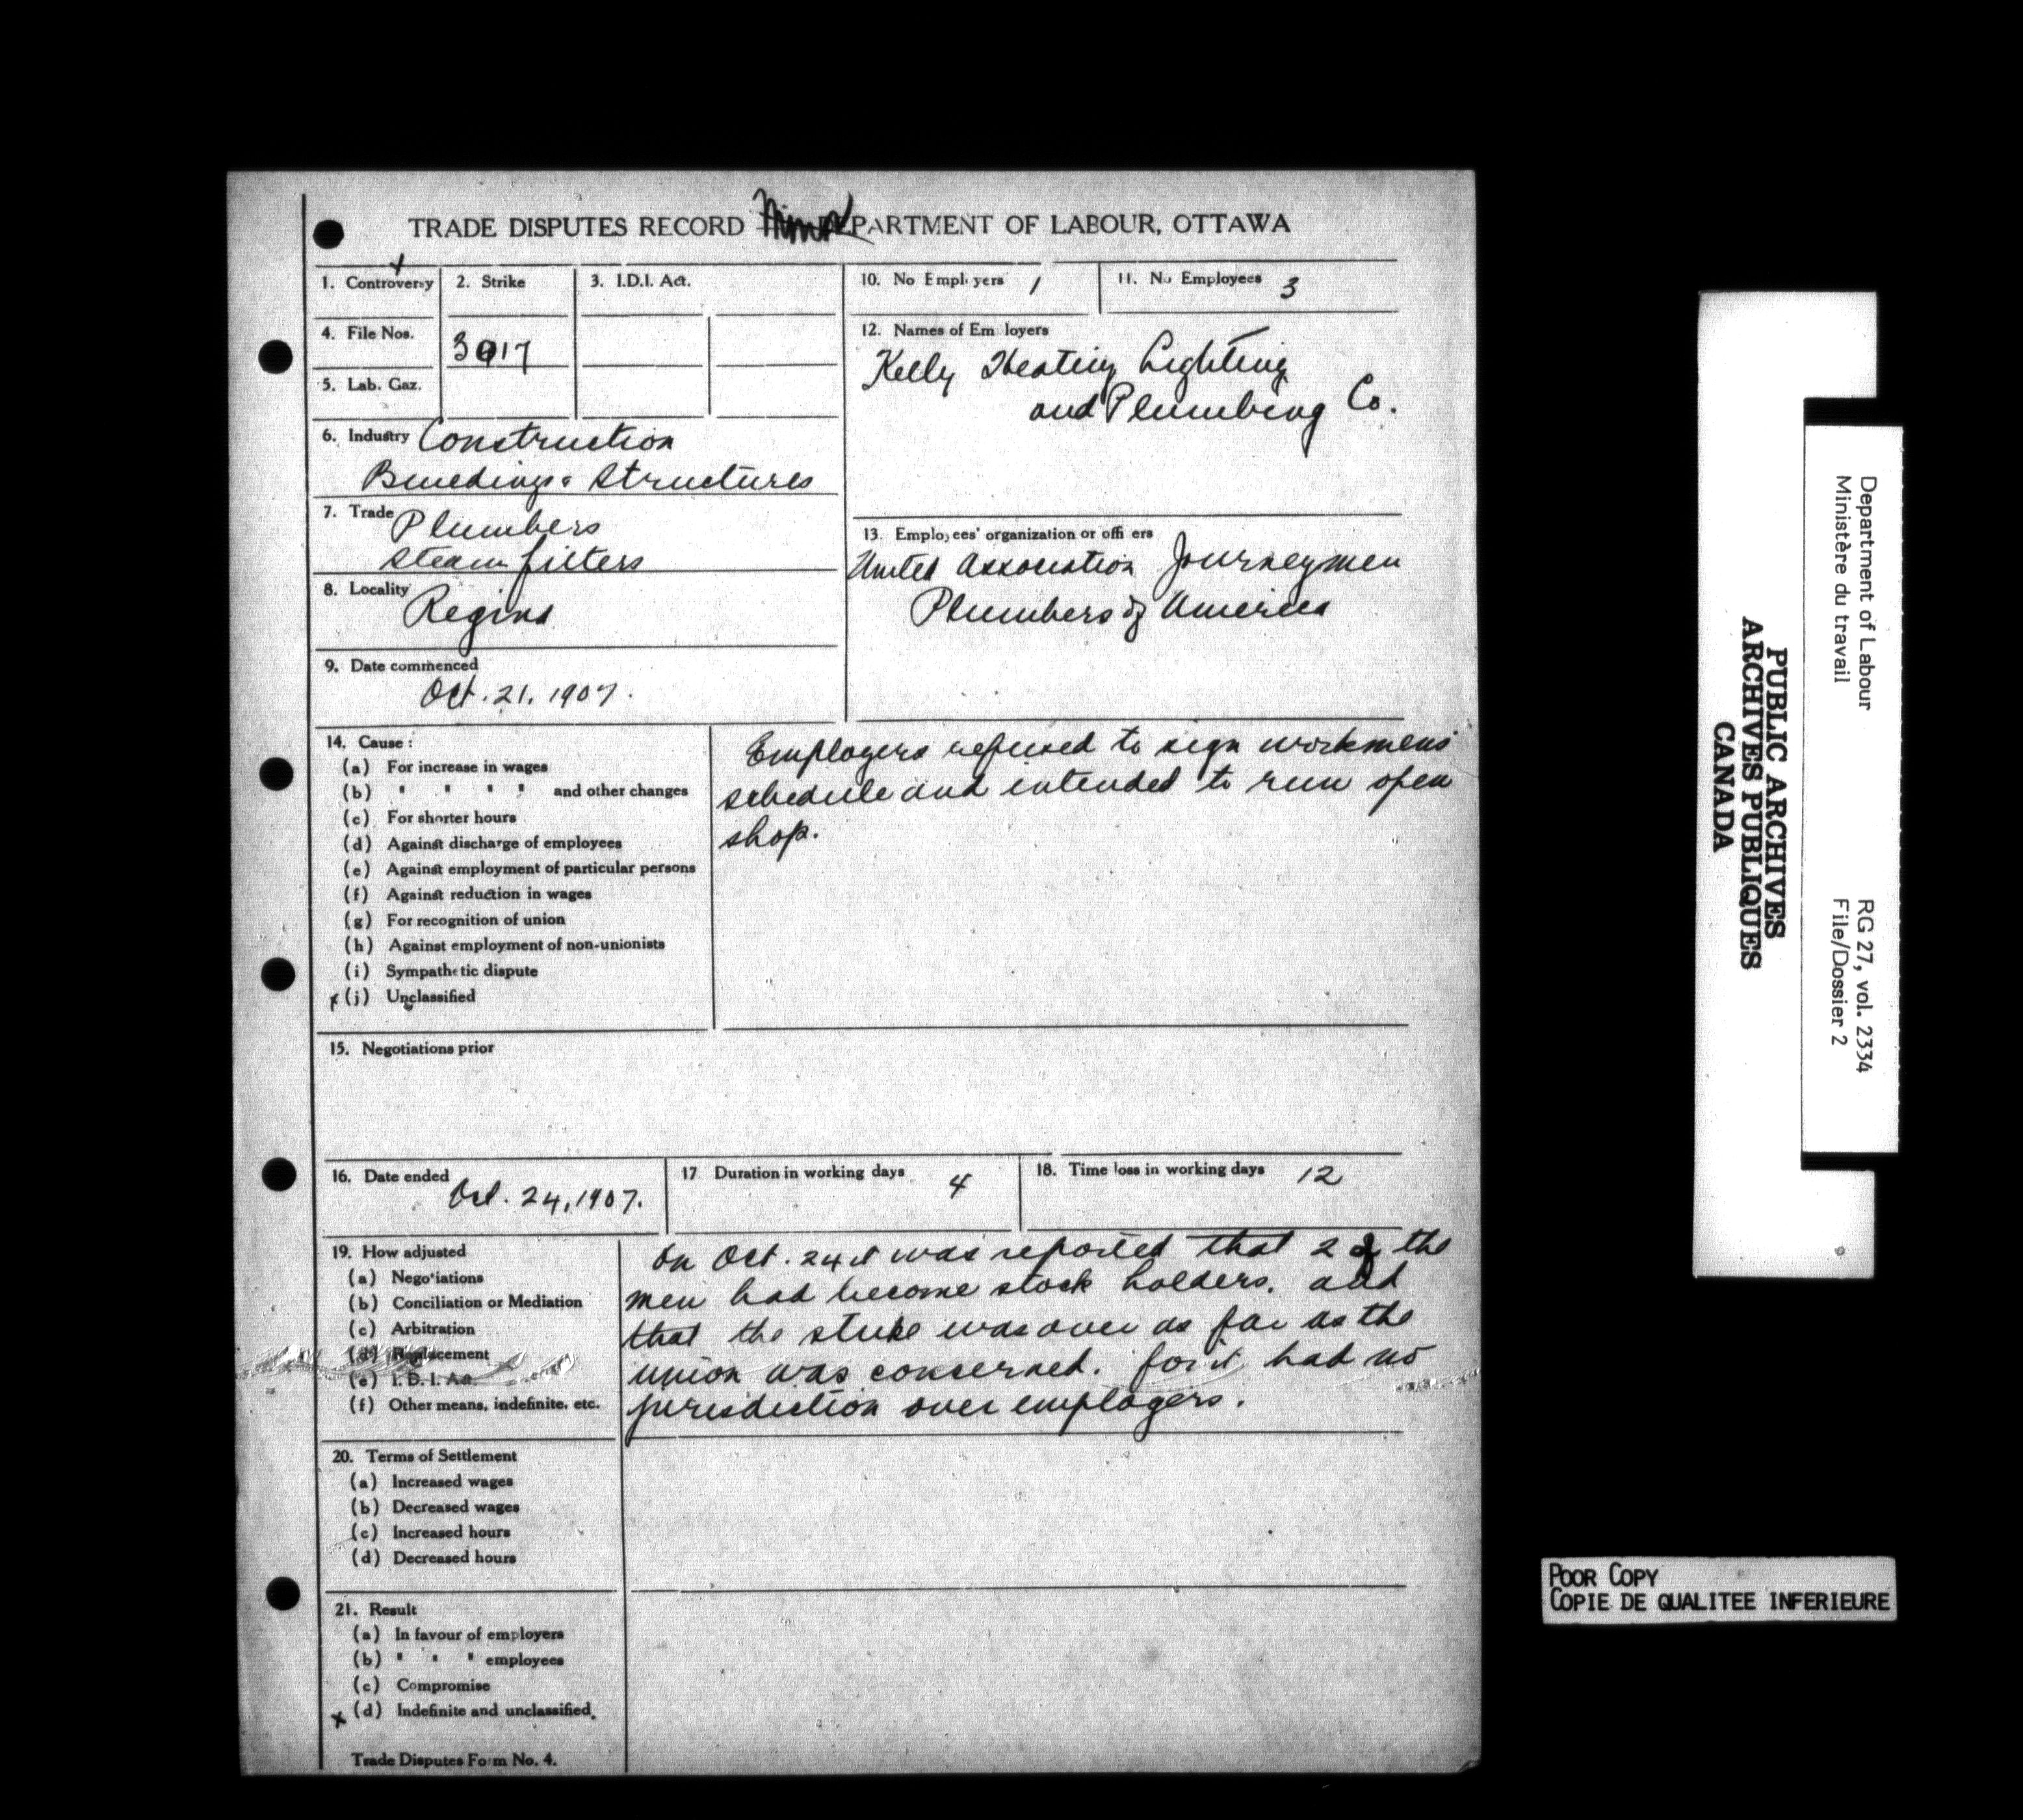 TRADE DISPUTES RECORD DEPARTMENT OF LABOUR, OTTAWA
1. Controversy
2. Strike
3. I.D.I. Act.
4. File Nos.
3917
5. Lab. Gaz.
6. Industry Construction
Buildings & Structures
7. Trade Plumbers
Steam fitters
8. Locality
Regina
9. Date commenced
Oct. 21. 1907.
10. No Employers 1
11. No Employees 3
12. Names of Employers
Kelly Heating Lighting
and Plumbing Co.
13. Employees' organization or officers
United Association Journeymen
Plumbers of America
14. Cause:
(a) For increase in wages
(b) " " " " and other changes
(c) For shorter hours
(d) Against discharge of employees
(e) Against employment of particular persons
(f) Against reduction in wages
(g) For recognition of union
(h) Against employment of non-unionists
(i) Sympathetic dispute
x (j) Unclassified
Employers refused to sign workmens'
schedule and intended to run open
shop.
15. Negotiations prior
16. Date ended
Oct. 24, 1907.
17 Duration in working days 4
18. Time loss in working days 12
19. How adjusted
(a) Negotiations
(b) Conciliation or Mediation
(c) Arbitration
(d) Replacement
(e) I. D. I. Act.
(f) Other means, indefinite, etc.
On Oct. 24 it was reported that 2 of the
men had become stock holders. and
that the strike was over as far as the
union was concerned. for it had no
jurisdiction over employers.
20. Terms of Settlement
(a) Increased wages
(b) Decreased wages
(c) Increased hours
(d) Decreased hours
21. Result
(a) In favour of employers
(b) " " " employees
(c) Compromise
x (d) Indefinite and unclassified.
Trade Disputes Form No. 4.
Department of Labour
Ministère du travail
RG 27, vol. 2334
File/Dossier 2
PUBLIC ARCHIVES
ARCHIVES PUBLIQUES
CANADA
POOR COPY
COPIE DE QUALITEE INFERIEURE